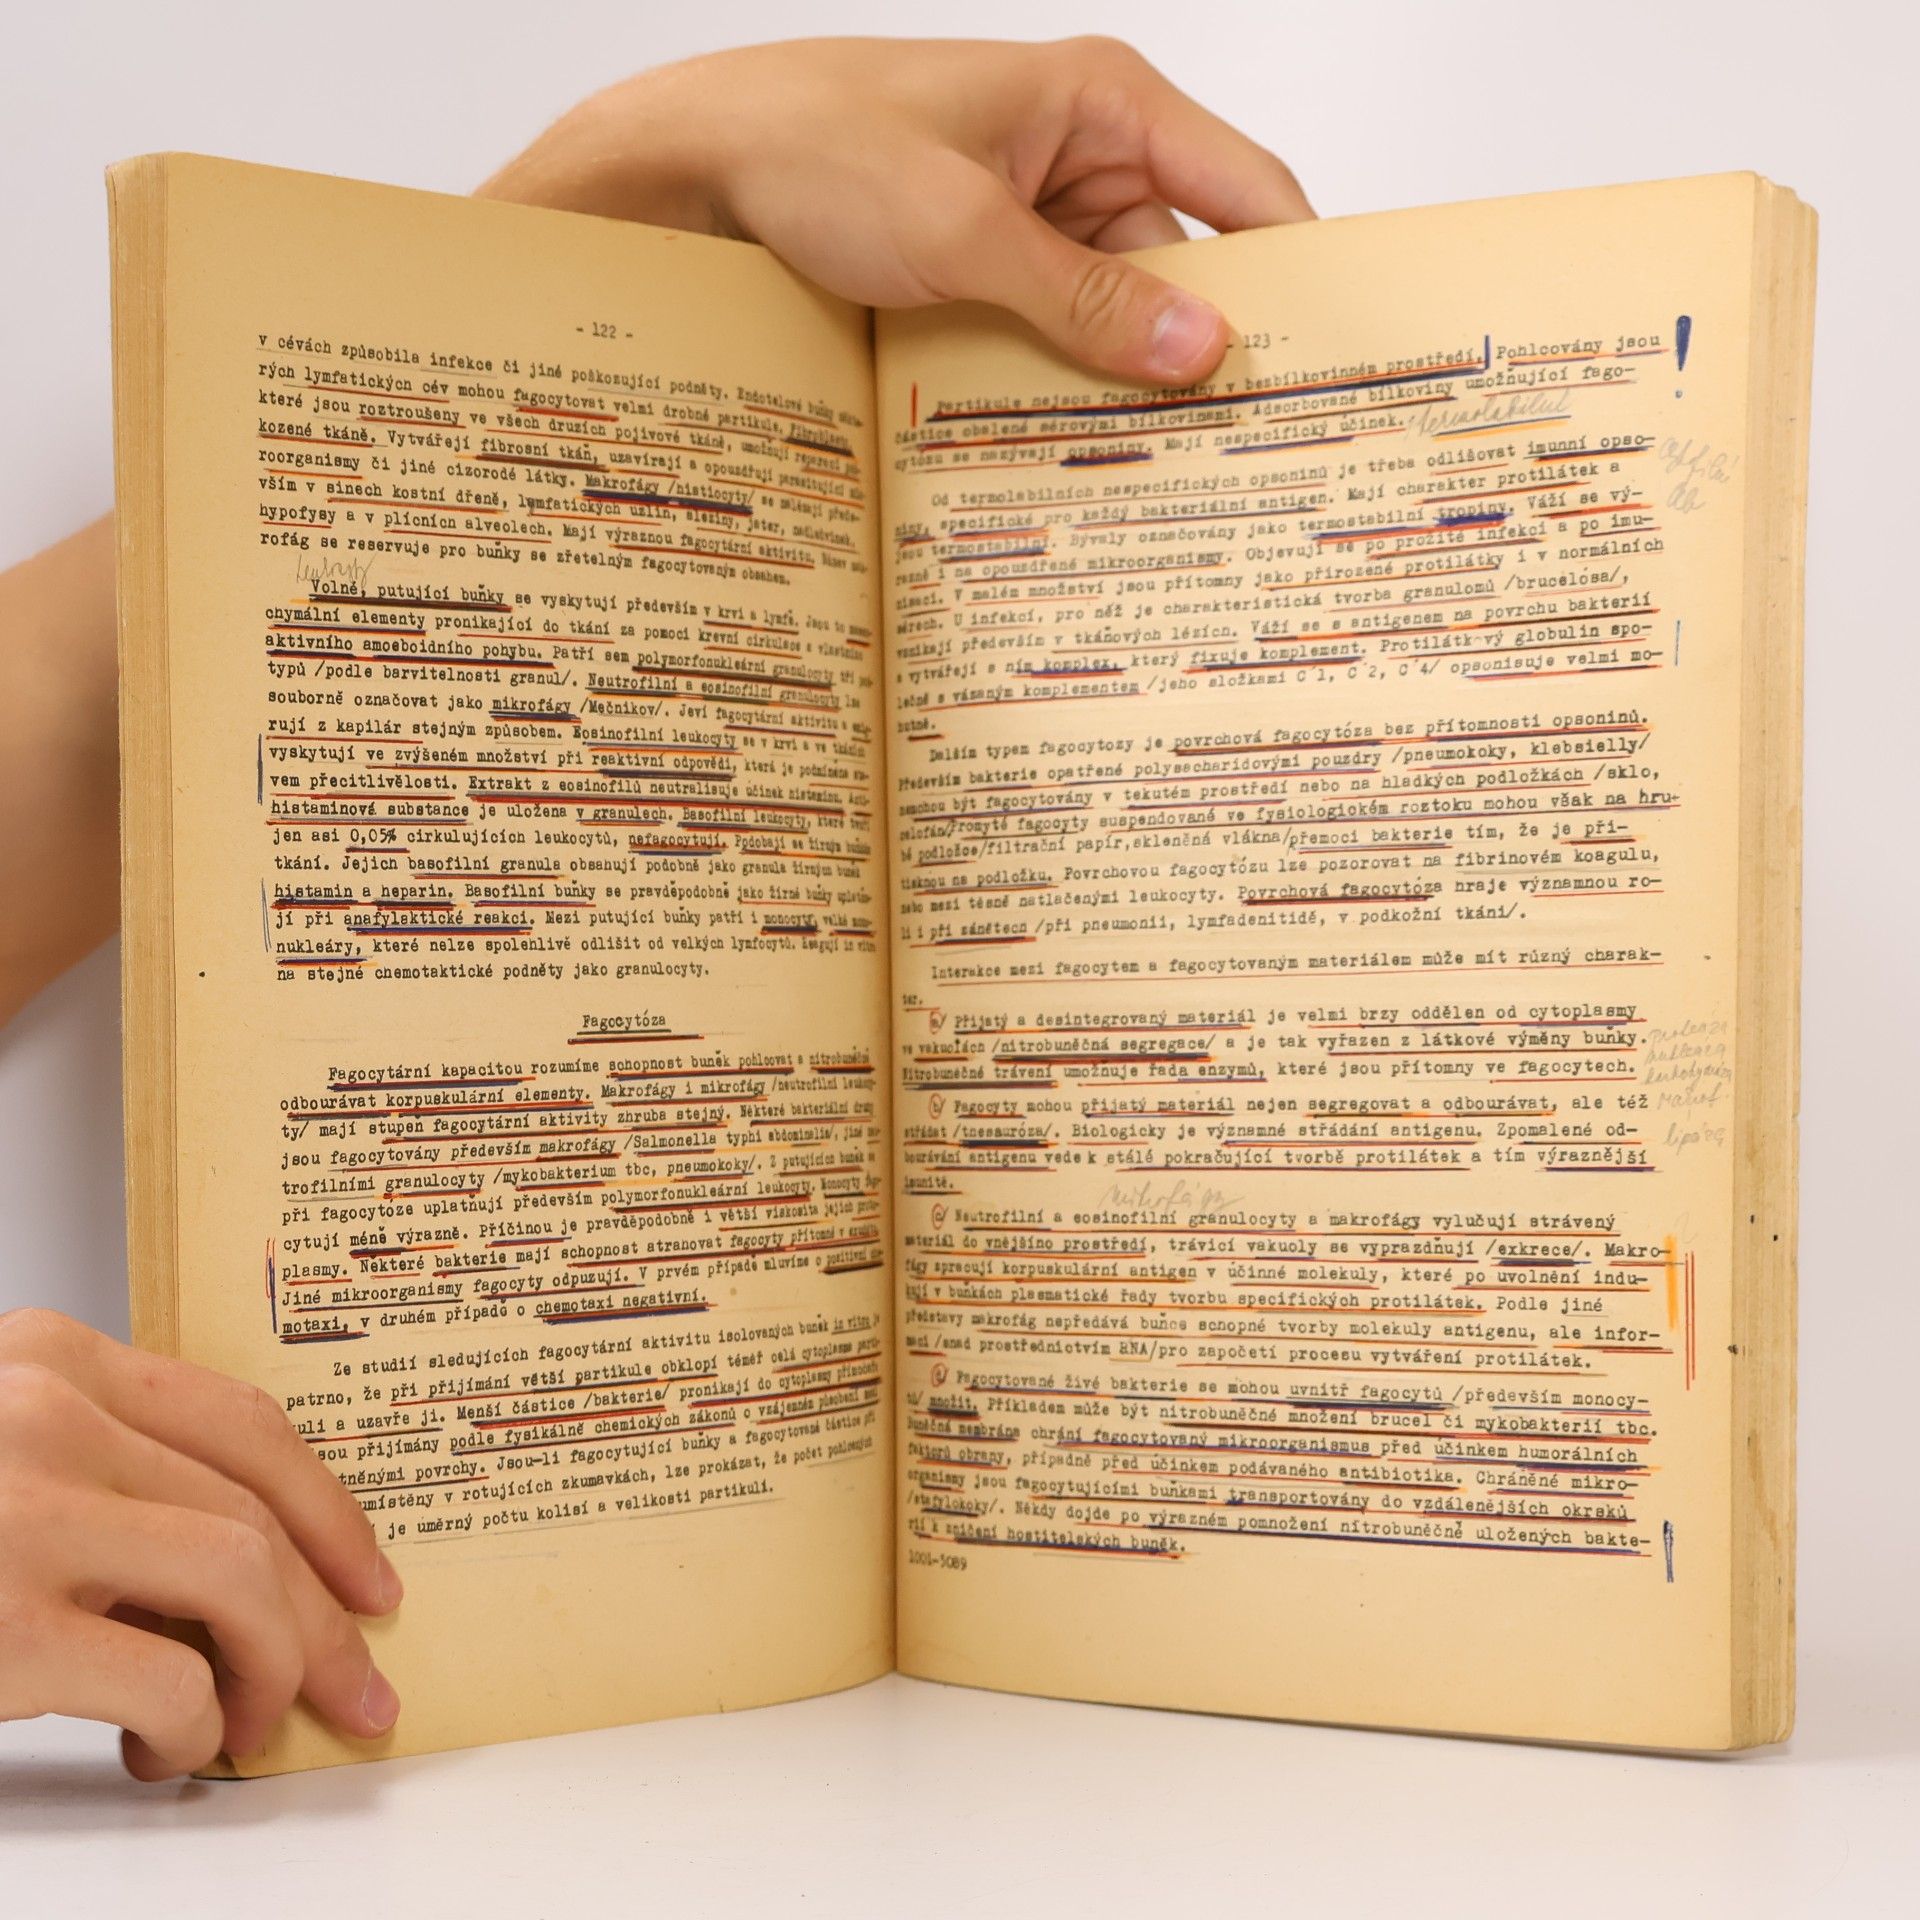 - 122 -
v cévách způsobila infekce či jiné poškozující podněty. Endotelové buňky
rých lymfatických cév mohou fagocytovat velmi drobné partikule. Fibroblasty,
které jsou roztroušeny ve všech druzích pojivové tkáně, umožňují reparaci
kozené tkáně. Vytvářejí fibrosní tkáň, uzavírají a opouzdřují parasitující
roorganismy či jiné cizorodé látky. Makrofágy /histiocyty/ se nalézají přede-
vším v sinech kostní dřeně, lymfatických uzlin, sleziny, jater, nadledvinek,
hypofysy a v plicních alveolech. Mají výraznou fagocytární aktivitu. Název
rofág se reservuje pro buňky se zřetelným fagocytovaným obsahem.
Leukocyty
Volné, putující buňky se vyskytují především v krvi a lymfě. Jsou to
chymální elementy pronikající do tkání za pomoci krevní cirkulace a vlastního
aktivního amoeboidního pohybu. Patří sem polymorfonukleární granulocyty tří
typů /podle barvitelnosti granul/. Neutrofilní a eosinofilní granulocyty lze
souborně označovat jako mikrofágy /Mečnikov/. Jeví fagocytární aktivitu a
rují z kapilár stejným způsobem. Eosinofilní leukocyty se v krvi a ve tkáních
vyskytují ve zvýšeném množství při reaktivní odpovědi, která je podmíněna
vem přecitlivělosti. Extrakt z eosinofilů neutralisuje účinek histaminu. Anti-
histaminová substance je uložena v granulech. Basofilní leukocyty, které tvoří
jen asi 0,05% cirkulujících leukocytů, nefagocytují. Podobají se žírným buňkám
tkání. Jejich basofilní granula obsahují podobně jako granula žírných buněk
histamin a heparin. Basofilní buňky se pravděpodobně jako žírné buňky uplatňu-
jí při anafylaktické reakci. Mezi putující buňky patří i monocyty, velké mono-
nukleáry, které nelze spolehlivě odlišit od velkých lymfocytů. Reagují in vitro
na stejné chemotaktické podněty jako granulocyty.
Fagocytóza
Fagocytární kapacitou rozumíme schopnost buněk pohlcovat a nitrobuněčně
odbourávat korpuskulární elementy. Makrofágy i mikrofágy /neutrofilní leukocy-
ty/ mají stupeň fagocytární aktivity zhruba stejný. Některé bakteriální druhy
jsou fagocytovány především makrofágy /Salmonella typhi abdominalis/, jiné
trofilními granulocyty /mykobakterium tbc, pneumokoky/. Z putujících buněk se
při fagocytóze uplatňují především polymorfonukleární leukocyty. Monocyty fago-
cytují méně výrazně. Příčinou je pravděpodobně i větší viskosita jejich proto-
plasmy. Některé bakterie mají schopnost atrahovat fagocyty přítomné v exsudátu.
Jiné mikroorganismy fagocyty odpuzují. V prvém případě mluvíme o positivní che-
motaxi, v druhém případě o chemotaxi negativní.
Ze studií sledujících fagocytární aktivitu isolovaných buněk in vitro je
patrno, že při přijímání větší partikule obklopí téměř celá cytoplasma parti-
kuli a uzavře ji. Menší částice /bakterie/ pronikají do cytoplasmy přímočaře
sou přijímány podle fysikálně chemických zákonů o vzájemném působení mezi
tněnými povrchy. Jsou-li fagocytující buňky a fagocytované částice při
umístěny v rotujících zkumavkách, lze prokázat, že počet pohlcených
je úměrný počtu kolisí a velikosti partikulí.
123 -
Partikule nejsou fagocytovány v bezbílkovinném prostředí. Pohlcovány jsou
částice obalené sérovými bílkovinami. Adsorbované bílkoviny umožňující fago-
cytózu se nazývají opsoniny. Mají nespecifický účinek. /termolabilní
Od termolabilních nespecifických opsoninů je třeba odlišovat imunní opso-
niny, specifické pro každý bakteriální antigen. Mají charakter protilátek a
jsou termostabilní. Bývaly označovány jako termostabilní tropiny. Váží se vý-
razně i na opouzdřené mikroorganismy. Objevují se po prožité infekci a po imu-
nisaci. V malém množství jsou přítomny jako přirozené protilátky i v normálních
sérech. U infekcí, pro něž je charakteristická tvorba granulomů /brucelósa/,
vznikají především v tkáňových lézích. Váží se s antigenem na povrchu bakterií
a vytvářejí s ním komplex, který fixuje komplement. Protilátkový globulin spo-
lečně s vázaným komplementem /jeho složkami C´1, C´2, C´4/ opsonisuje velmi mo-
hutně.
Dalším typem fagocytozy je povrchová fagocytóza bez přítomnosti opsoninů.
Především bakterie opatřené polysacharidovými pouzdry /pneumokoky, klebsielly/
nemohou být fagocytovány v tekutém prostředí nebo na hladkých podložkách /sklo,
celofán/Promyté fagocyty suspendované ve fysiologickém roztoku mohou však na hru-
bé podložce/filtrační papír,skleněná vlákna/přemoci bakterie tím, že je při-
tisknou na podložku. Povrchovou fagocytózu lze pozorovat na fibrinovém koagulu,
nebo mezi těsně natlačenými leukocyty. Povrchová fagocytóza hraje významnou ro-
li i při zánětech /při pneumonii, lymfadenitidě, v podkožní tkáni/.
Interakce mezi fagocytem a fagocytovaným materiálem může mít různý charak-
ter.
a/ Přijatý a desintegrovaný materiál je velmi brzy oddělen od cytoplasmy
ve vakuolách /nitrobuněčná segregace/ a je tak vyřazen z látkové výměny buňky.
Nitrobuněčné trávení umožňuje řada enzymů, které jsou přítomny ve fagocytech.
b/ Fagocyty mohou přijatý materiál nejen segregovat a odbourávat, ale též
střádat /thesauróza/. Biologicky je významné střádání antigenu. Zpomalené od-
bourávání antigenu vede k stálé pokračující tvorbě protilátek a tím výraznější
imunitě.
mikrofágy
c/ Neutrofilní a eosinofilní granulocyty a makrofágy vylučují strávený
materiál do vnějšího prostředí, trávicí vakuoly se vyprazdňují /exkrece/. Makro-
fágy zpracují korpuskulární antigen v účinné molekuly, které po uvolnění indu-
kují v buňkách plasmatické řady tvorbu specifických protilátek. Podle jiné
představy makrofág nepředává buňce schopné tvorby molekuly antigenu, ale infor-
maci /snad prostřednictvím RNA/pro započetí procesu vytváření protilátek.
d/ Fagocytované živé bakterie se mohou uvnitř fagocytů /především monocy-
tů/ množit. Příkladem může být nitrobuněčné množení brucel či mykobakterií tbc.
Buněčná membrána chrání fagocytovaný mikroorganismus před účinkem humorálních
faktorů obrany, případně před účinkem podávaného antibiotika. Chráněné mikro-
organismy jsou fagocytujícími buňkami transportovány do vzdálenějších okrsků
/stafylokoky/. Někdy dojde po výrazném pomnožení nitrobuněčně uložených bakte-
rií k zničení hostitelských buněk.
1001-5089